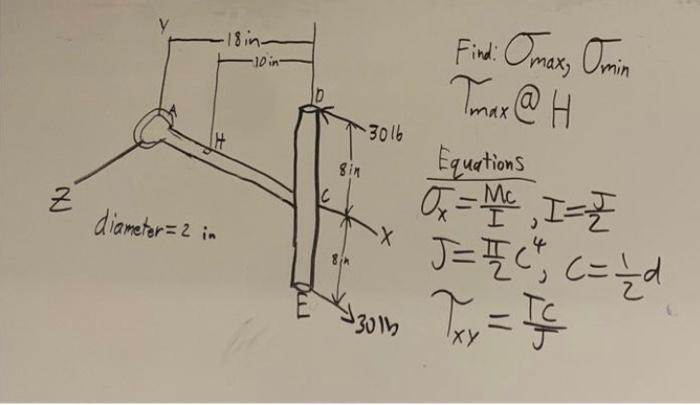 Y
18 in
10 in
D
A
H
30 lb
8 in
C
X
Z
diameter = 2 in
8 in
E
30 lb
Find: σmax, σmin
τmax @ H
Equations
σx = Mc/I , I = J/2
J = π/2 c⁴, c = 1/2 d
τxy = Tc/J